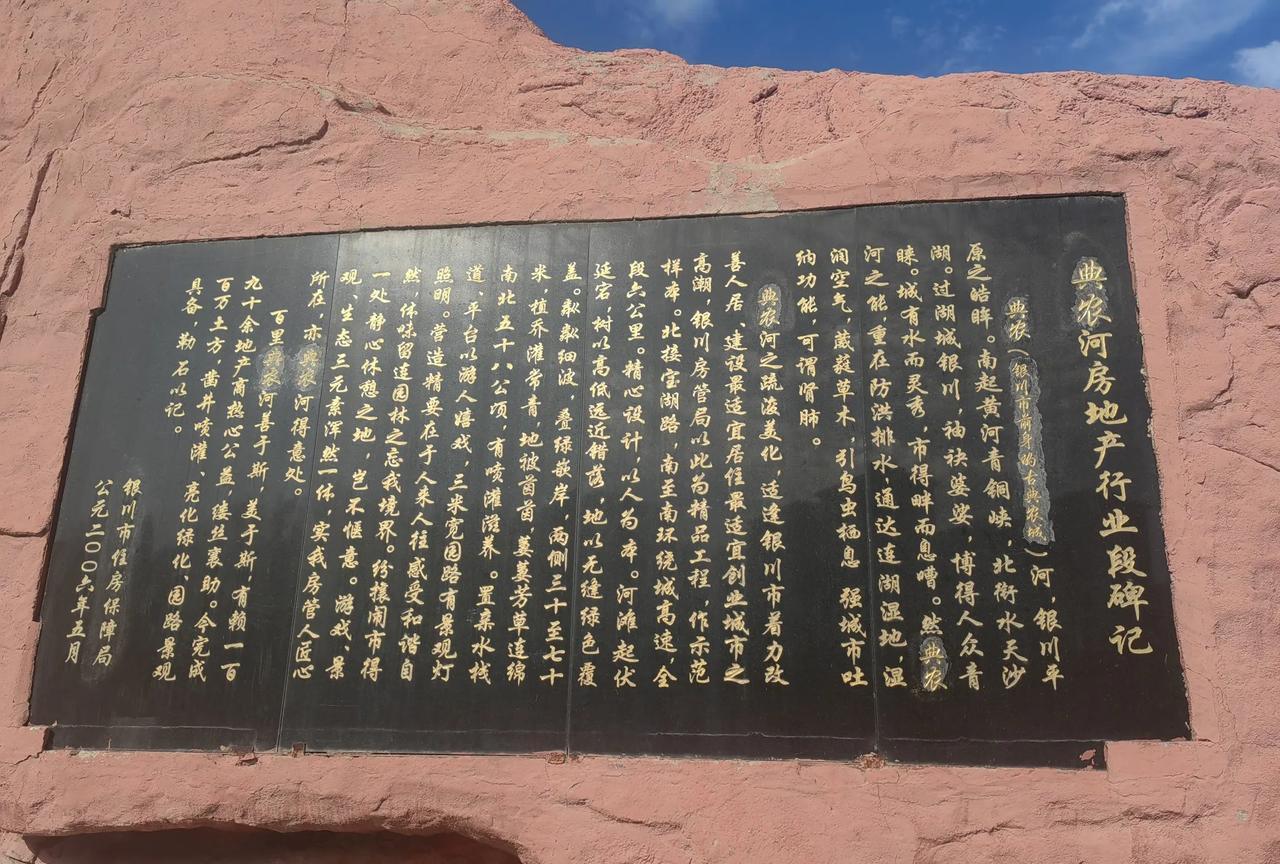 典农河房地产行业段碑记
典农（银川市前身的古典农城）河，银川平
原之皓眸。南起黄河青铜峡，北衔水天沙
湖。过湖城银川，袖袂婆娑，博得人众青
睐。城有水而灵秀，市得畔而息嘈。然典农
河之能，重在防洪排水，通达连湖湿地，湿
润空气，葳蕤草木，引鸟虫栖息 强城市吐
纳功能，可谓肾肺。
典农河之疏浚美化，适逢银川市着力改
善人居、建设最适宜居住最适宜创业城市之
高潮，银川房管局以此为精品工程，作示范
样本。北接宝湖路，南至南环绕城高速，全
段六公里。精心设计，以人为本。河滩起伏
延宕，树以高低远近错落，地以无缝绿色覆
盖。粼粼细波，叠绿嵌岸，两侧三十至七十
米，植乔灌常青，地被茵茵，萋萋芳草连绵
南北五十八公顷，有喷灌滋养。置亲水栈
道、平台以游人嬉戏，三米宽园路有景观灯
照明。营造精要在于人来人往感受和谐自
然，体味留连园林之忘我境界。纷攘闹市得
一处静心休憩之地，岂不惬意。游戏、景
观、生态三元素浑然一体，实我房管人匠心
所在，亦典农河得意处。
百里典农河善于斯，美于斯，有赖一百
九十余地产商热心公益，缕丝襄助。今完成
百万土方，凿井喷灌、亮化绿化、园路景观
具备，勒石以记。
银川市住房保障局
公元二〇〇六年五月